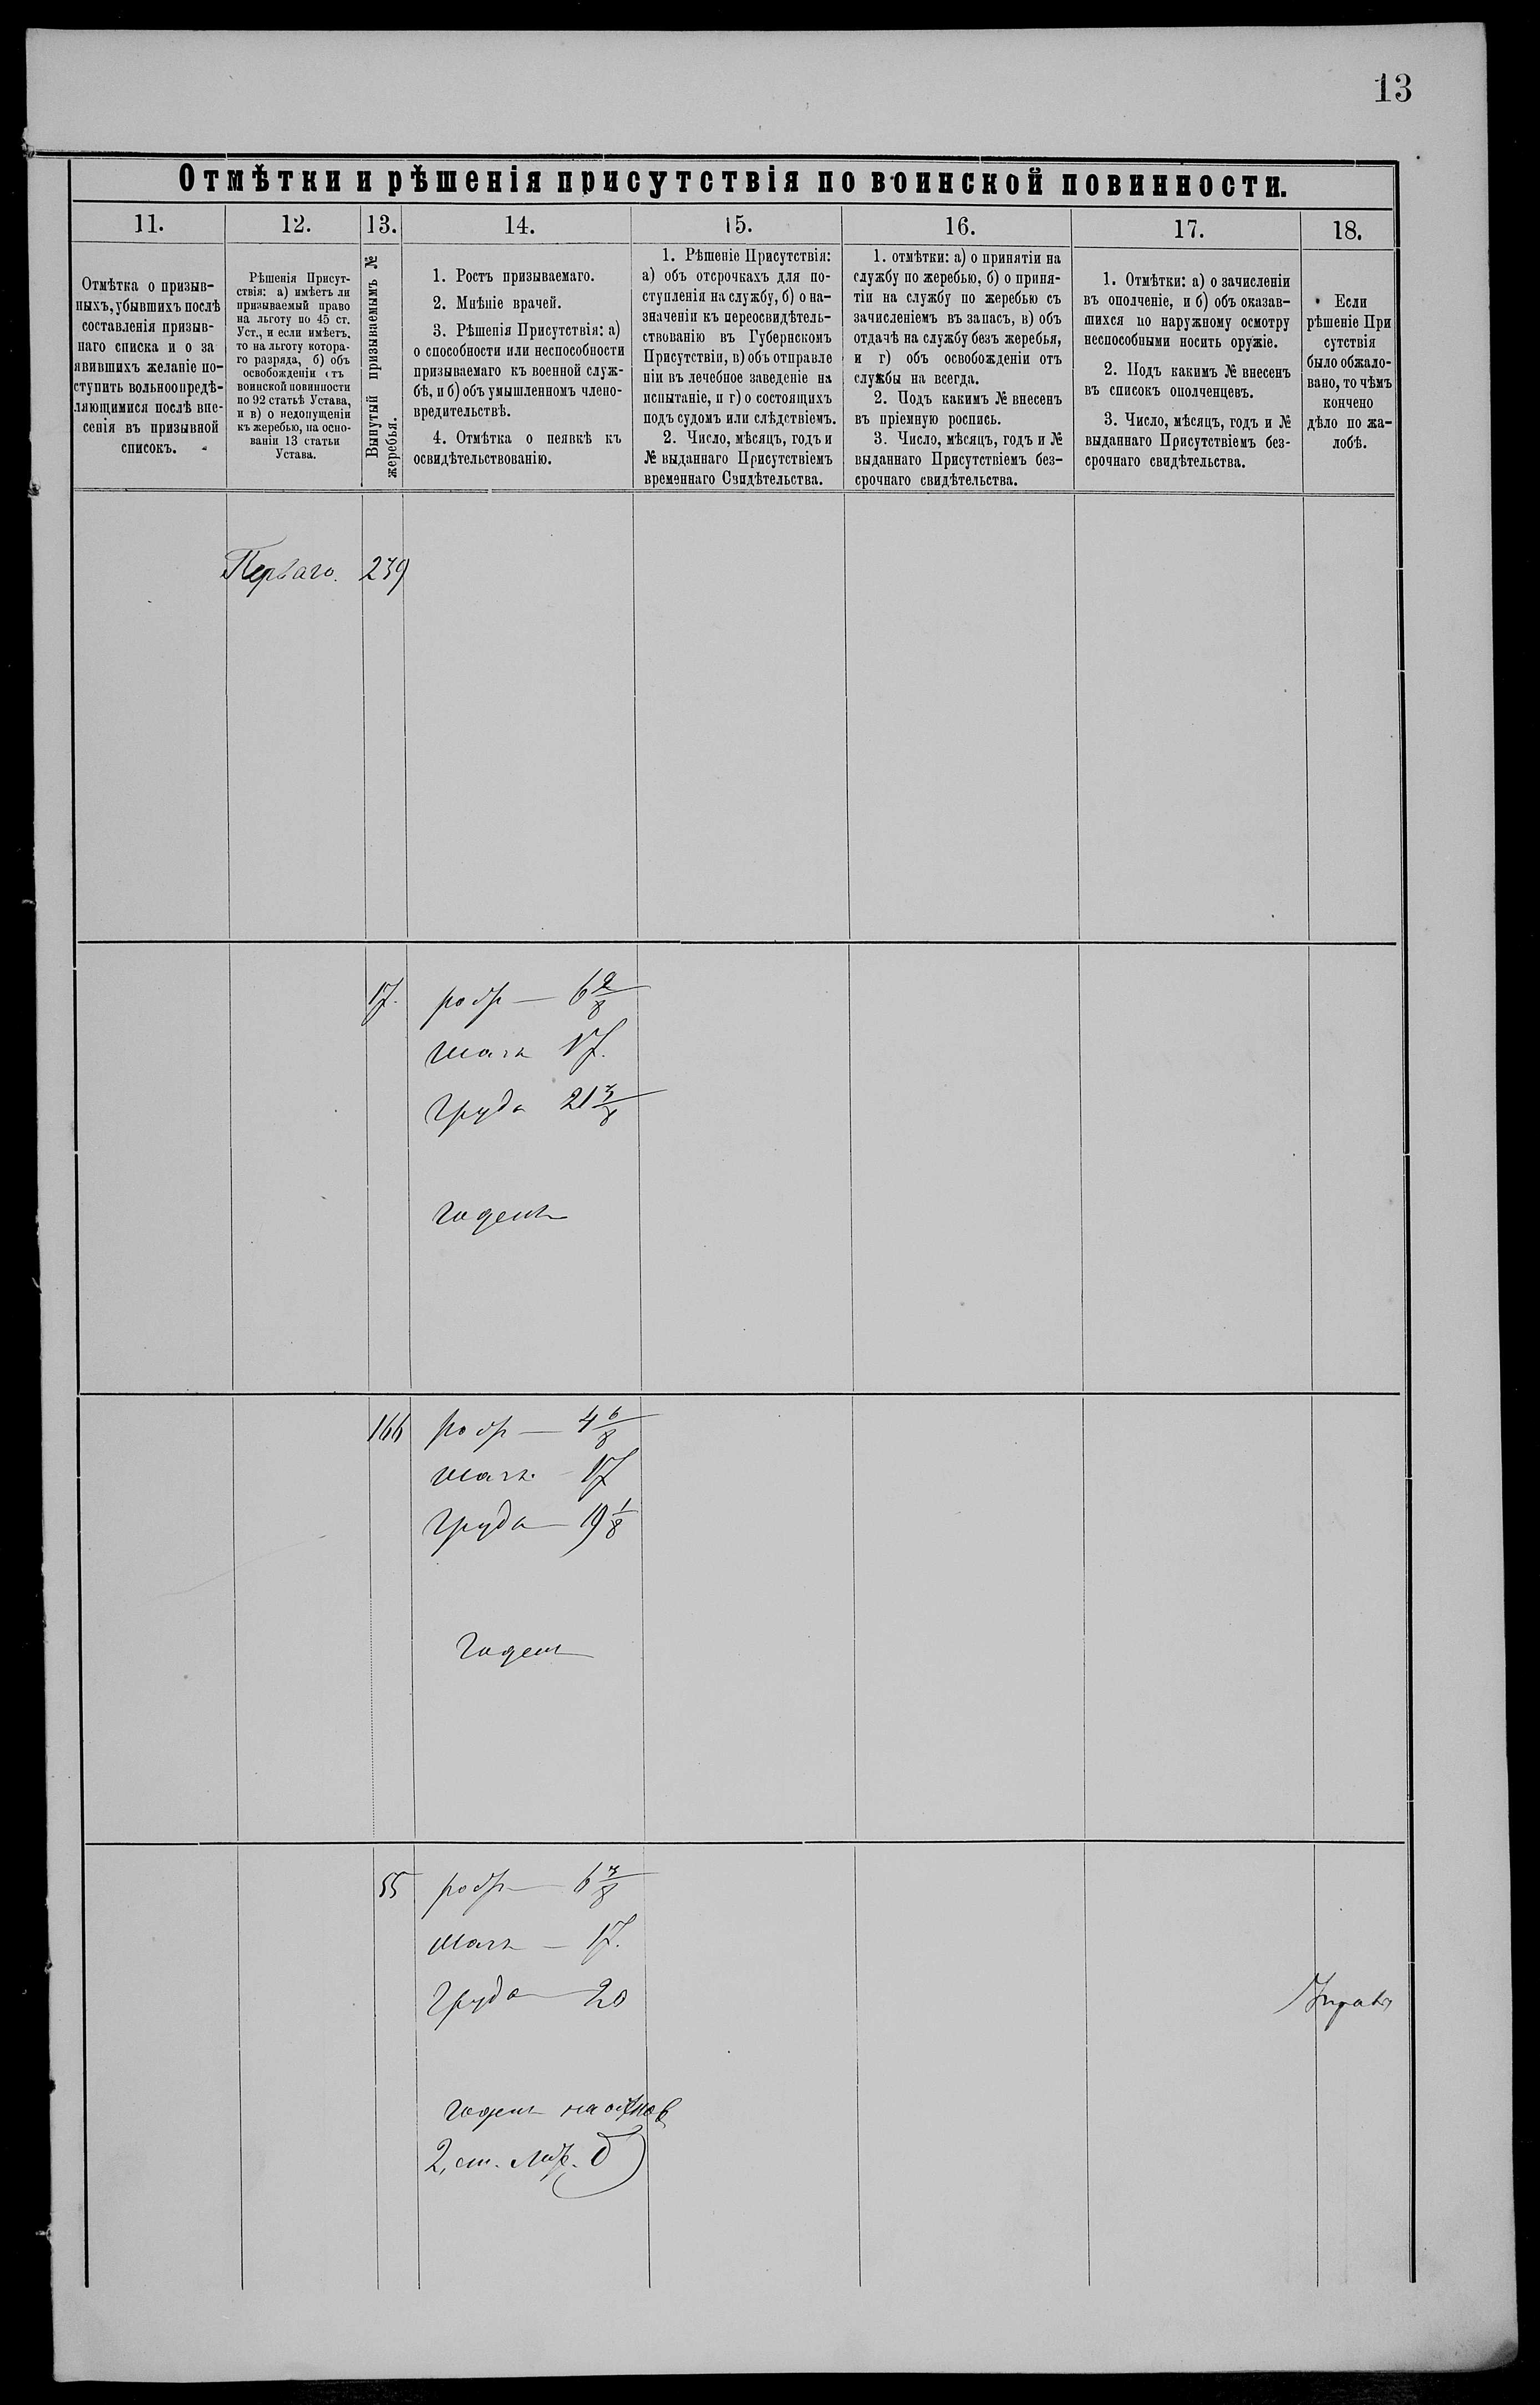 13
Отмѣтки и рѣшенія присутствія по воинской повинности.
11.
12.
13.
14.
15.
16.
17.
18.
Отмѣтка о призыв-
ныхъ, убывшихъ послѣ
составленія призыв-
наго списка и о за
явившихъ желаніе по-
ступить вольноопредѣ-
ляющимися послѣ вне-
сенія въ призывной
списокъ.
Рѣшенія Присут-
ствія: а) имѣетъ ли
призываемый право
на льготу по 45 ст.
Уст., и если имѣетъ,
то на льготу котора-
го разряда, б) объ
освобожденіи отъ
воинской повинности
по 92 статьѣ Устава,
и в) о недопущеніи
къ жеребью, на осно-
ваніи 13 статьи
Устава.
Вынутый призываемымъ №
жеребья.
1. Ростъ призываемаго.
2. Мнѣніе врачей.
3. Рѣшенія Присутствія: а)
о способности или неспособности
призываемаго къ военной служ-
бѣ, и б) объ умышленномъ члено-
вредительствѣ.
4. Отмѣтка о неявкѣ къ
освидѣтельствованію.
1. Рѣшеніе Присутствія:
а) объ отсрочкахъ для по-
ступленія на службу, б) о на-
значеніи къ переосвидѣтель-
ствованію въ Губернскомъ
Присутствіи, в) объ отправле
ніи въ лечебное заведеніе на
испытаніе, и г) о состоящихъ
подъ судомъ или слѣдствіемъ.
2. Число, мѣсяцъ, годъ и
№ выданнаго Присутствіемъ
временнаго Свидѣтельства.
1. отмѣтки: а) о принятіи на
службу по жеребью, б) о приня-
тіи на службу по жеребью съ
зачисленіемъ въ запасъ, в) объ
отдачѣ на службу безъ жеребья,
и г) объ освобожденіи отъ
службы на всегда.
2. Подъ какимъ № внесенъ
въ пріемную роспись.
3. Число, мѣсяцъ, годъ и №
выданнаго Присутствіемъ без-
срочнаго свидѣтельства.
1. Отмѣтки: а) о зачисленіи
въ ополченіе, и б) объ оказав-
шихся по наружному осмотру
неспособными носить оружіе.
2. Подъ какимъ № внесенъ
въ списокъ ополченцевъ.
3. Число, мѣсяцъ, годъ и №
выданнаго Присутствіемъ без-
срочнаго свидѣтельства.
Если
рѣшеніе При
сутствія
было обжало-
вано, то чѣмъ
кончено
дѣло по жа-
лобѣ.
Перваго. 239
17. ростъ — 6 2/8
17.
груда 21 3/8
годенъ
166 ростъ — 4 6/8
17
груда — 19 1/8
годенъ
55 ростъ — 6 3/8
— 17.
груда — 20
годенъ на основ
2, ст. Лит. б)